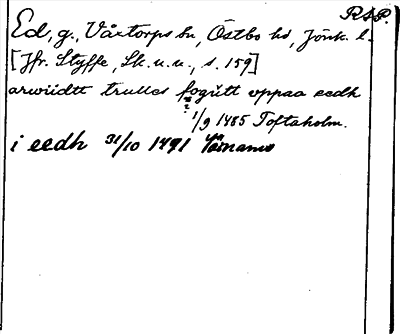 RSP.
Ed, g., Våxtorps sn, Östbo hd, Jönk. l.
[Jfr. Styffe, Sk. u. u., s. 159]
arwiidtt trulles fogütt vppaa eedh
?
1/9 1485 Toftaholm.
i eedh 31/10 1491 Värnamo